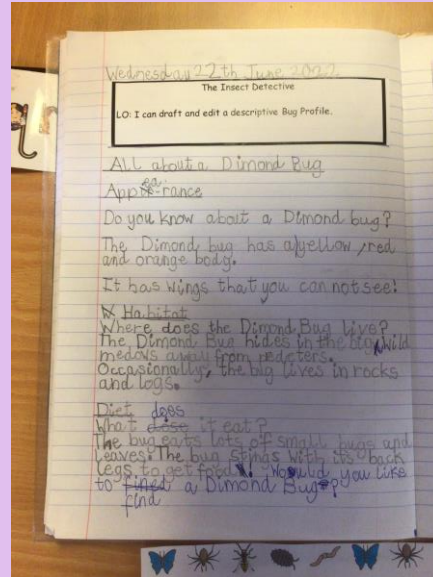 Wednesday 22th June 2022
The Insect Detective
LO: I can draft and edit a descriptive Bug Profile.
ALL about a Dimond Bug
Appearance
Do you know about a Dimond bug?
The Dimond bug has a yellow, red
and orange body.
It has wings that you can not see!
Habitat
Where does the Dimond Bug live?
The Dimond Bug hides in the big wild
medows away from pedeters.
Occasionally, the big lives in rocks
and logs.
Diet
What does it eat?
The bug eats lots of small bugs and
leaves. The bug stings with its back
legs to get food! Would you like
to find a Dimond Bug?